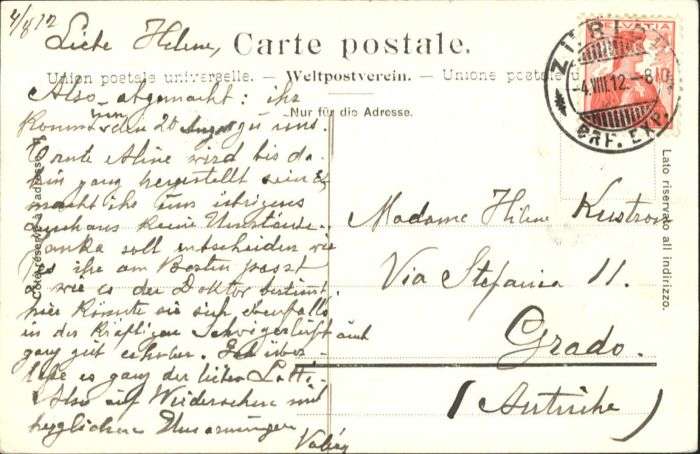 4/8 12
Liebe Hilene,
Carte postale.
Union postale universelle. — Weltpostverein. — Unione postale u
Nur für die Adresse.
Côté réservé à l'adresse.
Lato riservato all indirizzo.
HELVETIA
ZÜRI
-4.VIII.12.-8
BRF. EXP.
Also abgemacht: ihr
kommt den 20 August zu uns.
Tante Aline wird bis da-
hin ganz hergestellt sein &
macht ihr uns übrigens
durchaus keine Umstände.
soll entscheiden wie
es ihr am Besten passt
& wie es der Doktor bestimt.
hier könnte sie sich ebenfalls
in der kräftigen auch
ganz gut erholen. Ich über-
lasse es ganz der lieben
Also auf Wiedersehen mit
herzlichen Umarmungen
Madame Hilene
Via Stefania 11.
Grado.
(Autriche)